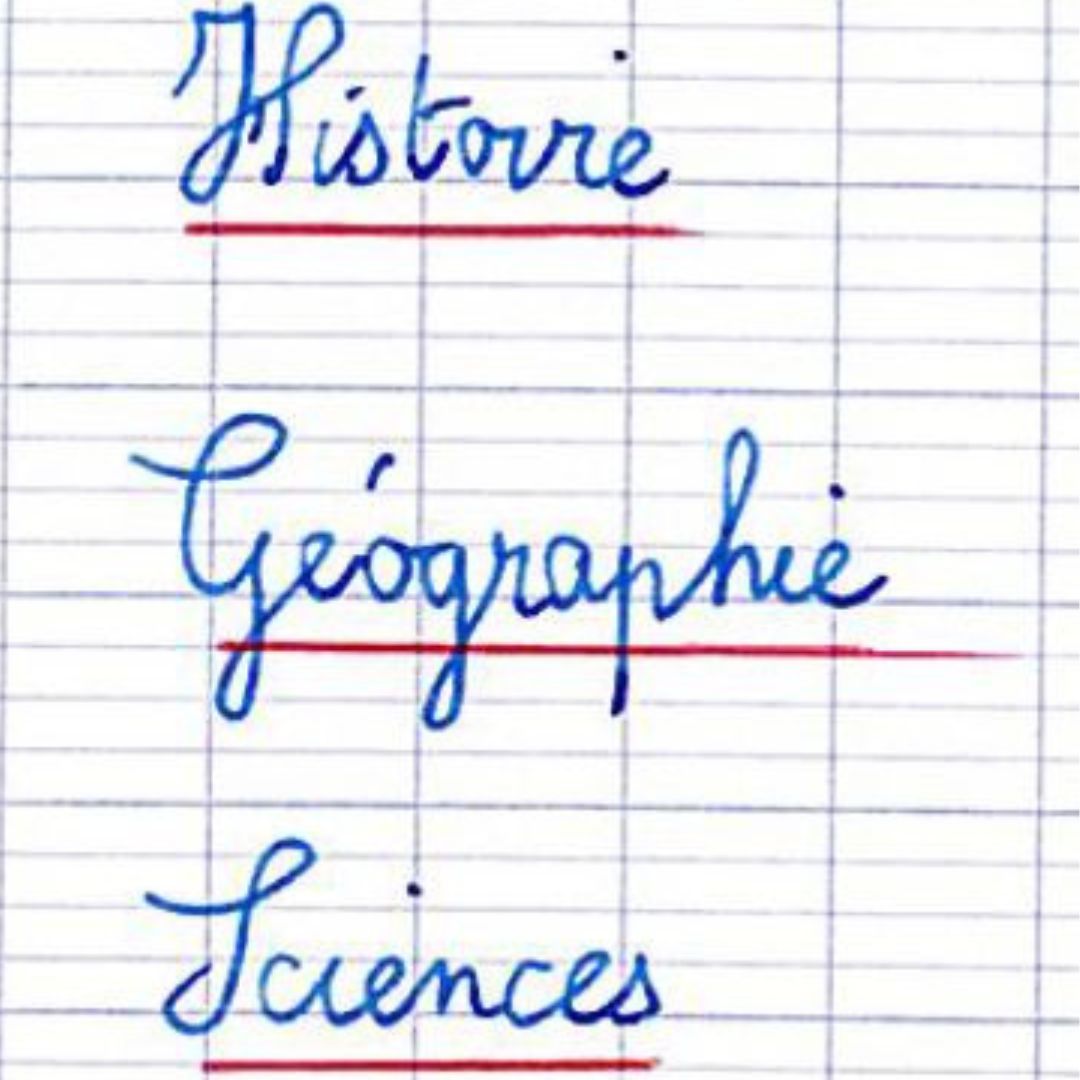 Histoire
Géographie
Sciences